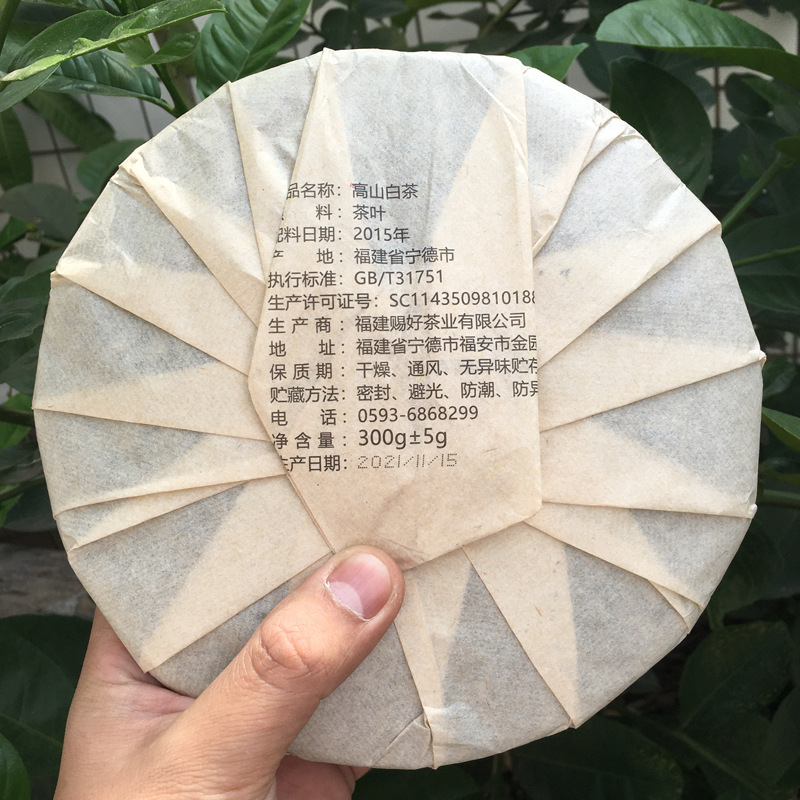 品名称：高山白茶
料：茶叶
配料日期：2015年
产 地：福建省宁德市
执行标准：GB/T31751
生产许可证号：SC1143509810188
生产商：福建赐好茶业有限公司
地 址：福建省宁德市福安市金园
保质期：干燥、通风、无异味贮存
贮藏方法：密封、避光、防潮、防异
电 话：0593-6868299
净含量：300g±5g
生产日期：2021/11/15